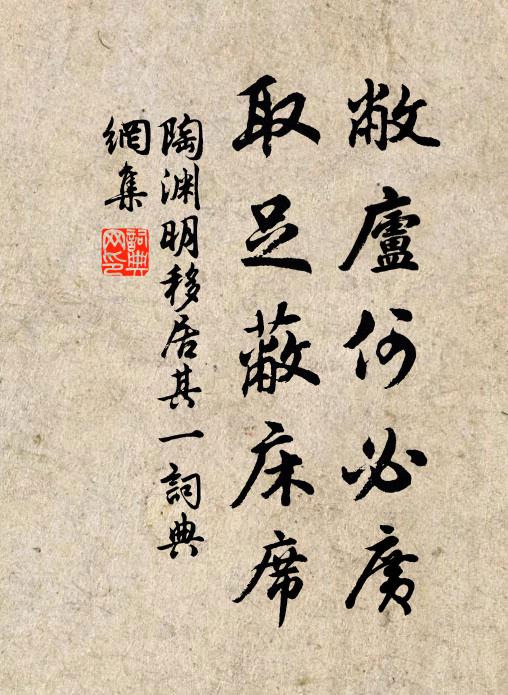 敝廬何必廣
取足蔽床席
陶渊明移居其一詞典
網集
詞典
网印